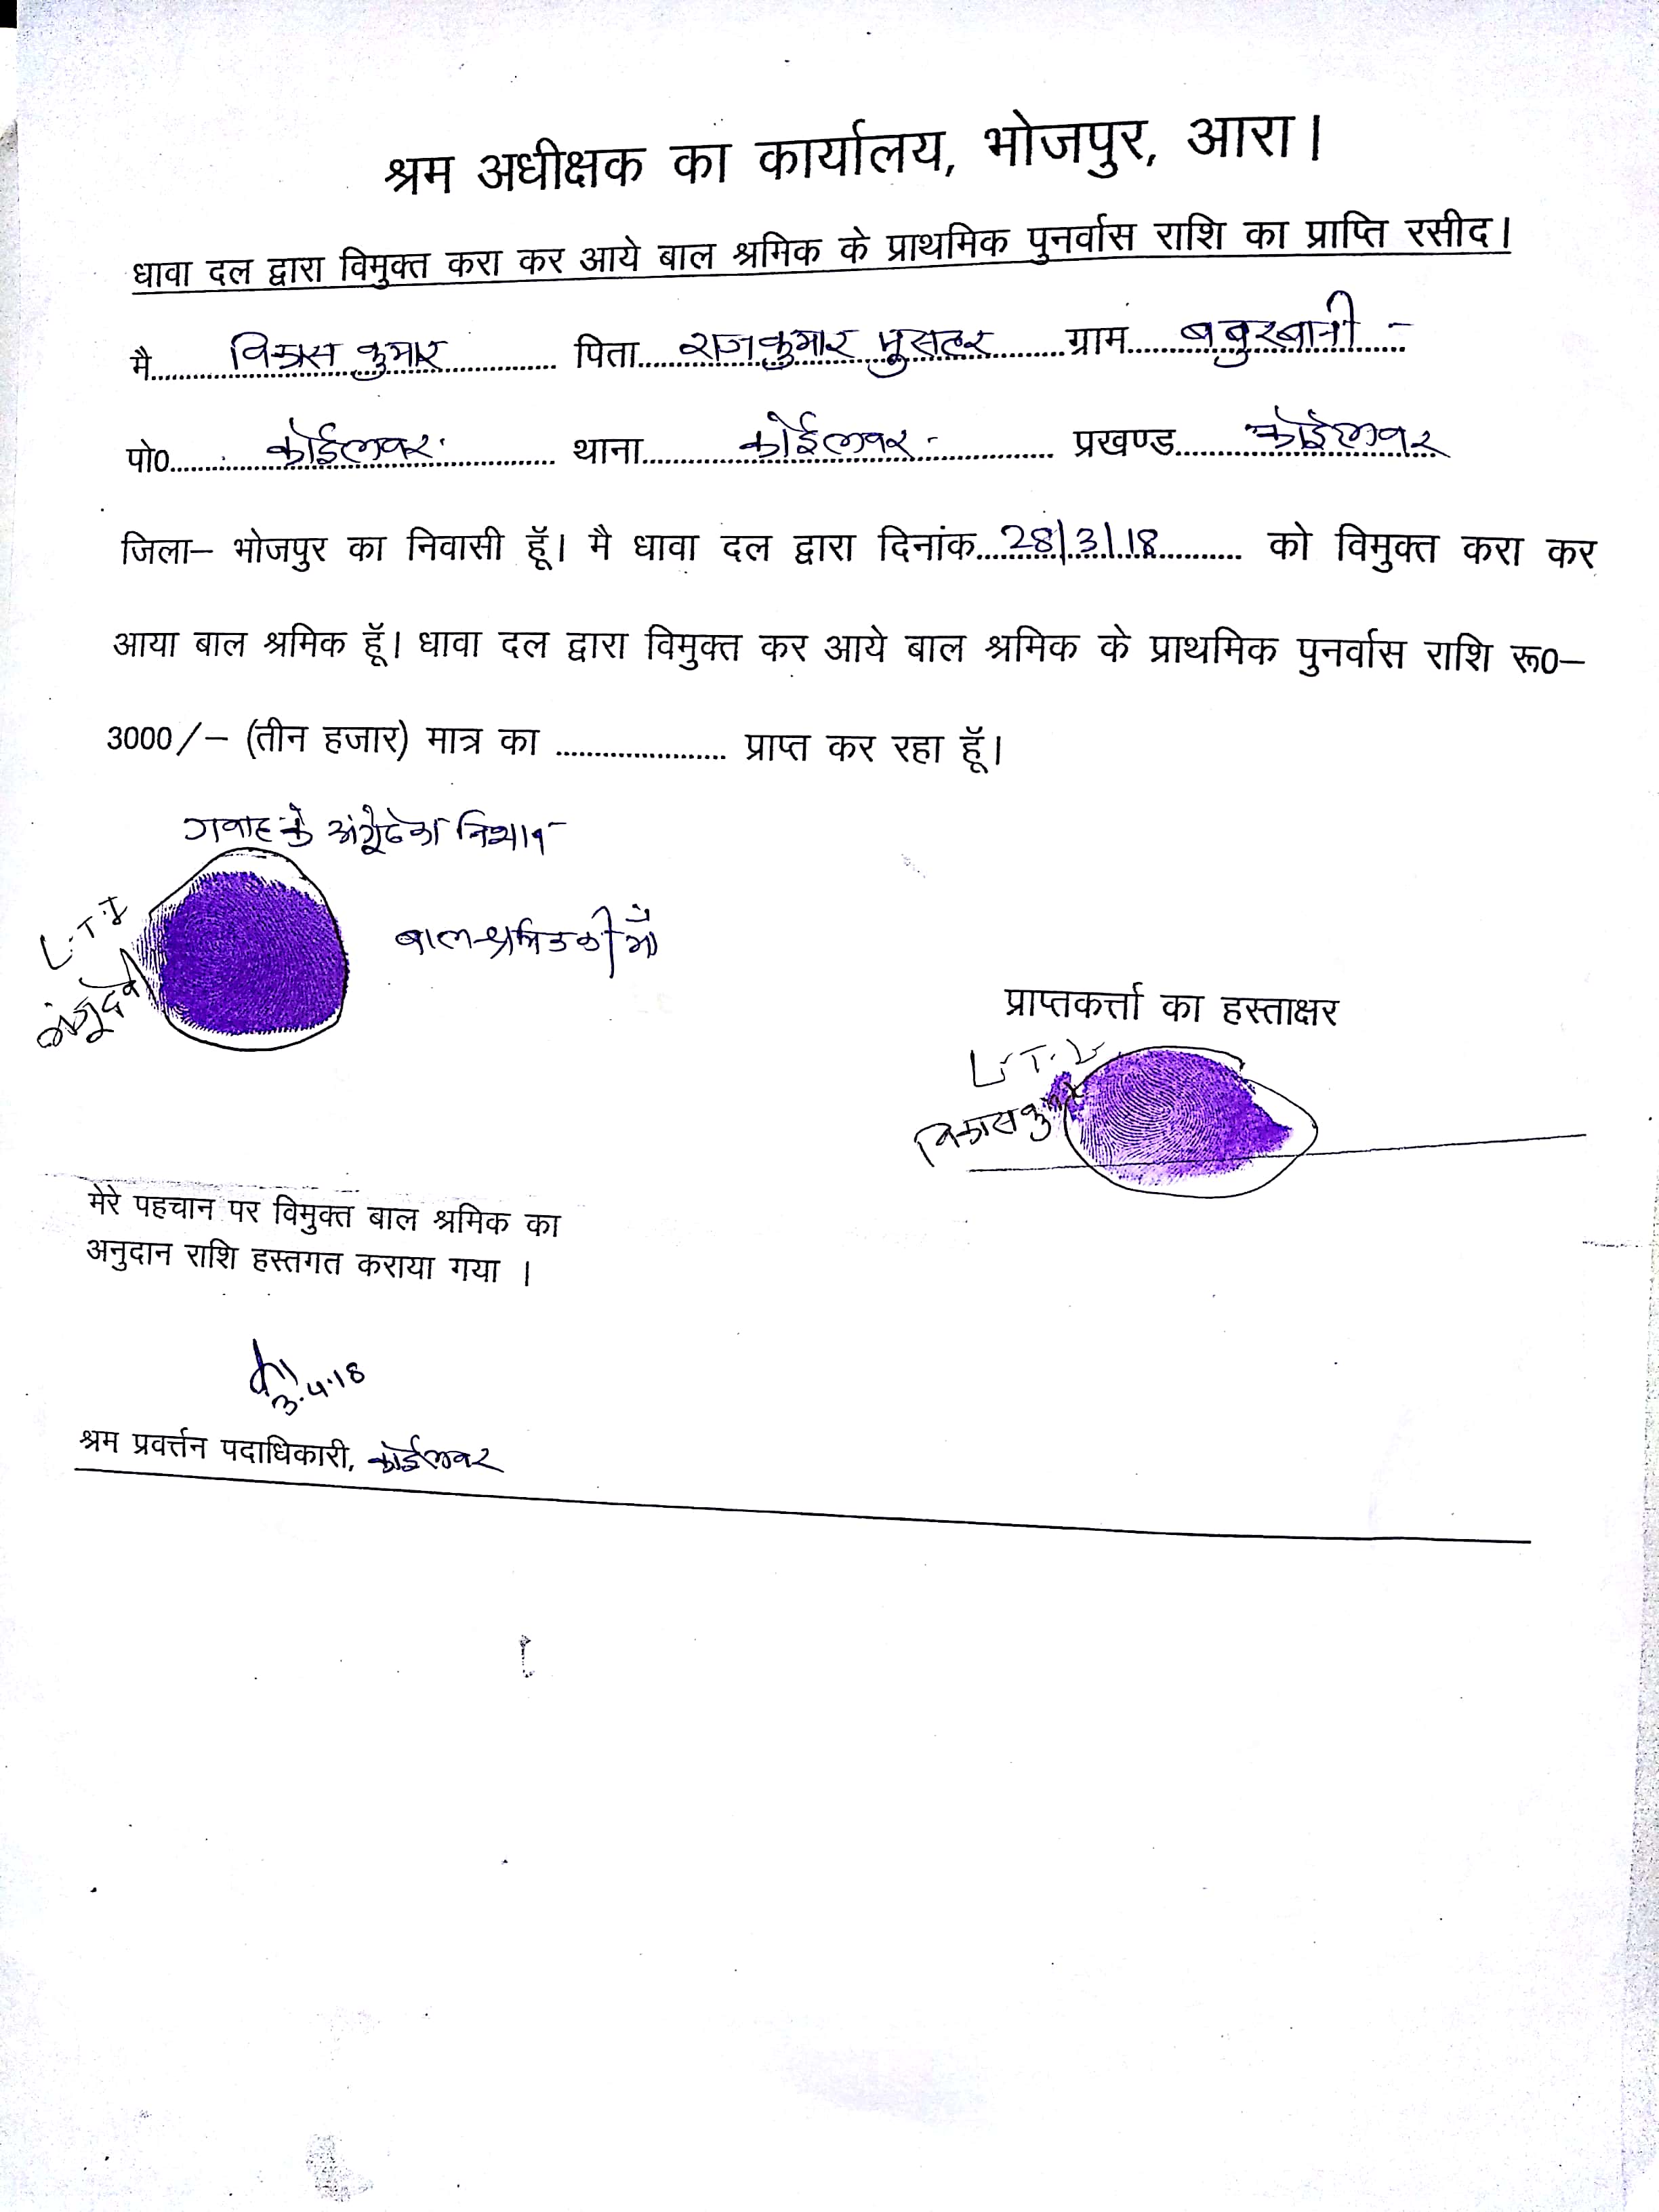 श्रम अधीक्षक का कार्यालय, भोजपुर, आरा।
धावा दल द्वारा विमुक्त करा कर आये बाल श्रमिक के प्राथमिक पुनर्वास राशि का प्राप्ति रसीद।
मै विकास कुमार पिता राजकुमार मुसहर ग्राम बबुरबानी
पो० कोईलवर थाना कोईलवर प्रखण्ड कोईलवर
जिला– भोजपुर का निवासी हूॅं। मै धावा दल द्वारा दिनांक 28/3/18 को विमुक्त करा कर
आया बाल श्रमिक हूॅं। धावा दल द्वारा विमुक्त कर आये बाल श्रमिक के प्राथमिक पुनर्वास राशि रू०–
3000/– (तीन हजार) मात्र का .................... प्राप्त कर रहा हूॅं।
गवाह के अंगूठे का निशान
L.T.I
बाल श्रमिक की माँ
प्राप्तकर्त्ता का हस्ताक्षर
L.T.I
विकास कुमार
मेरे पहचान पर विमुक्त बाल श्रमिक का
अनुदान राशि हस्तगत कराया गया ।
3.4.18
श्रम प्रवर्त्तन पदाधिकारी, कोईलवर